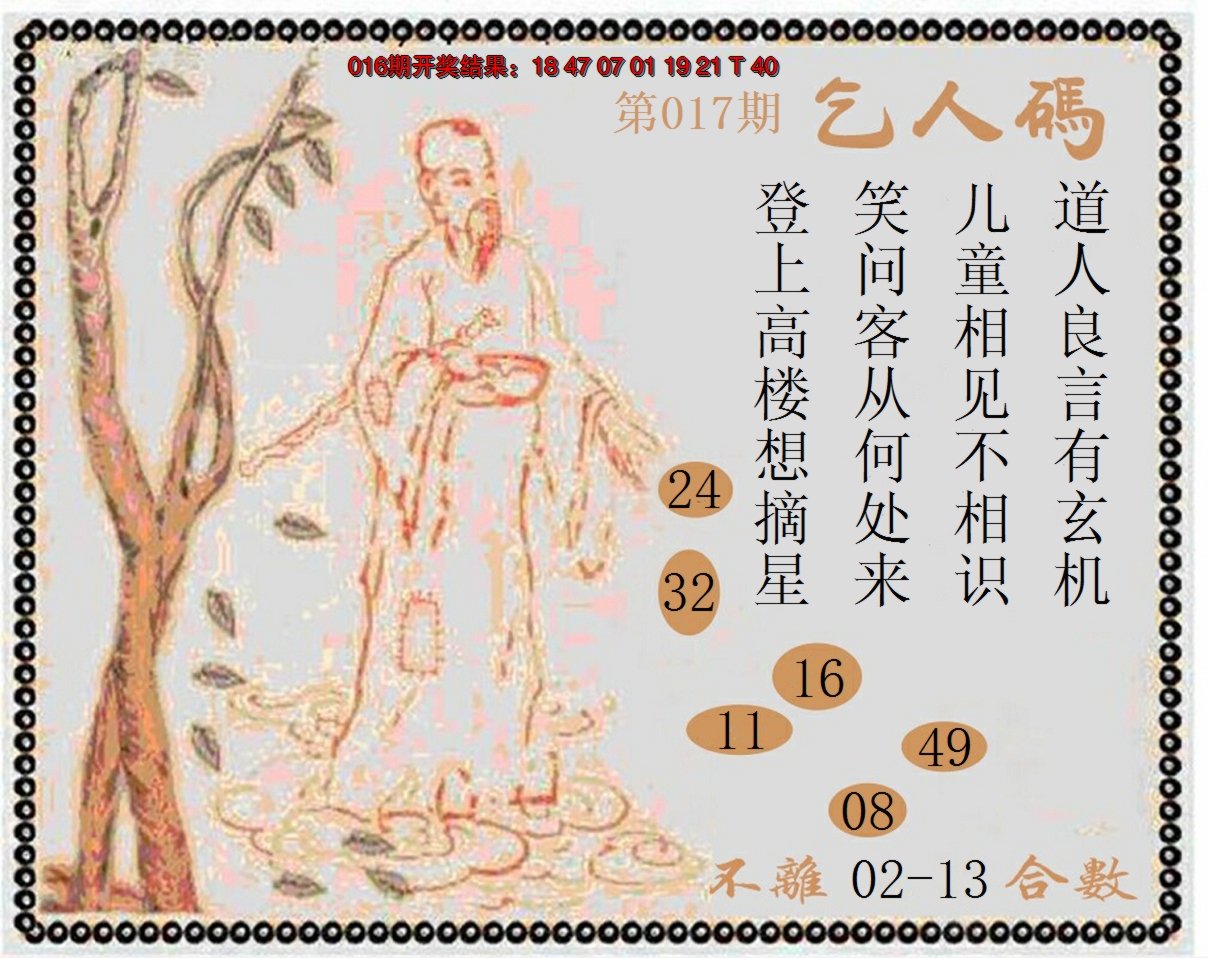 016期开奖结果：18 47 07 01 19 21 T 40
第017期 乞人碼
道人良言有玄机
儿童相见不相识
笑问客从何处来
登上高楼想摘星
24
32
16
11
49
08
不離 02-13 合數